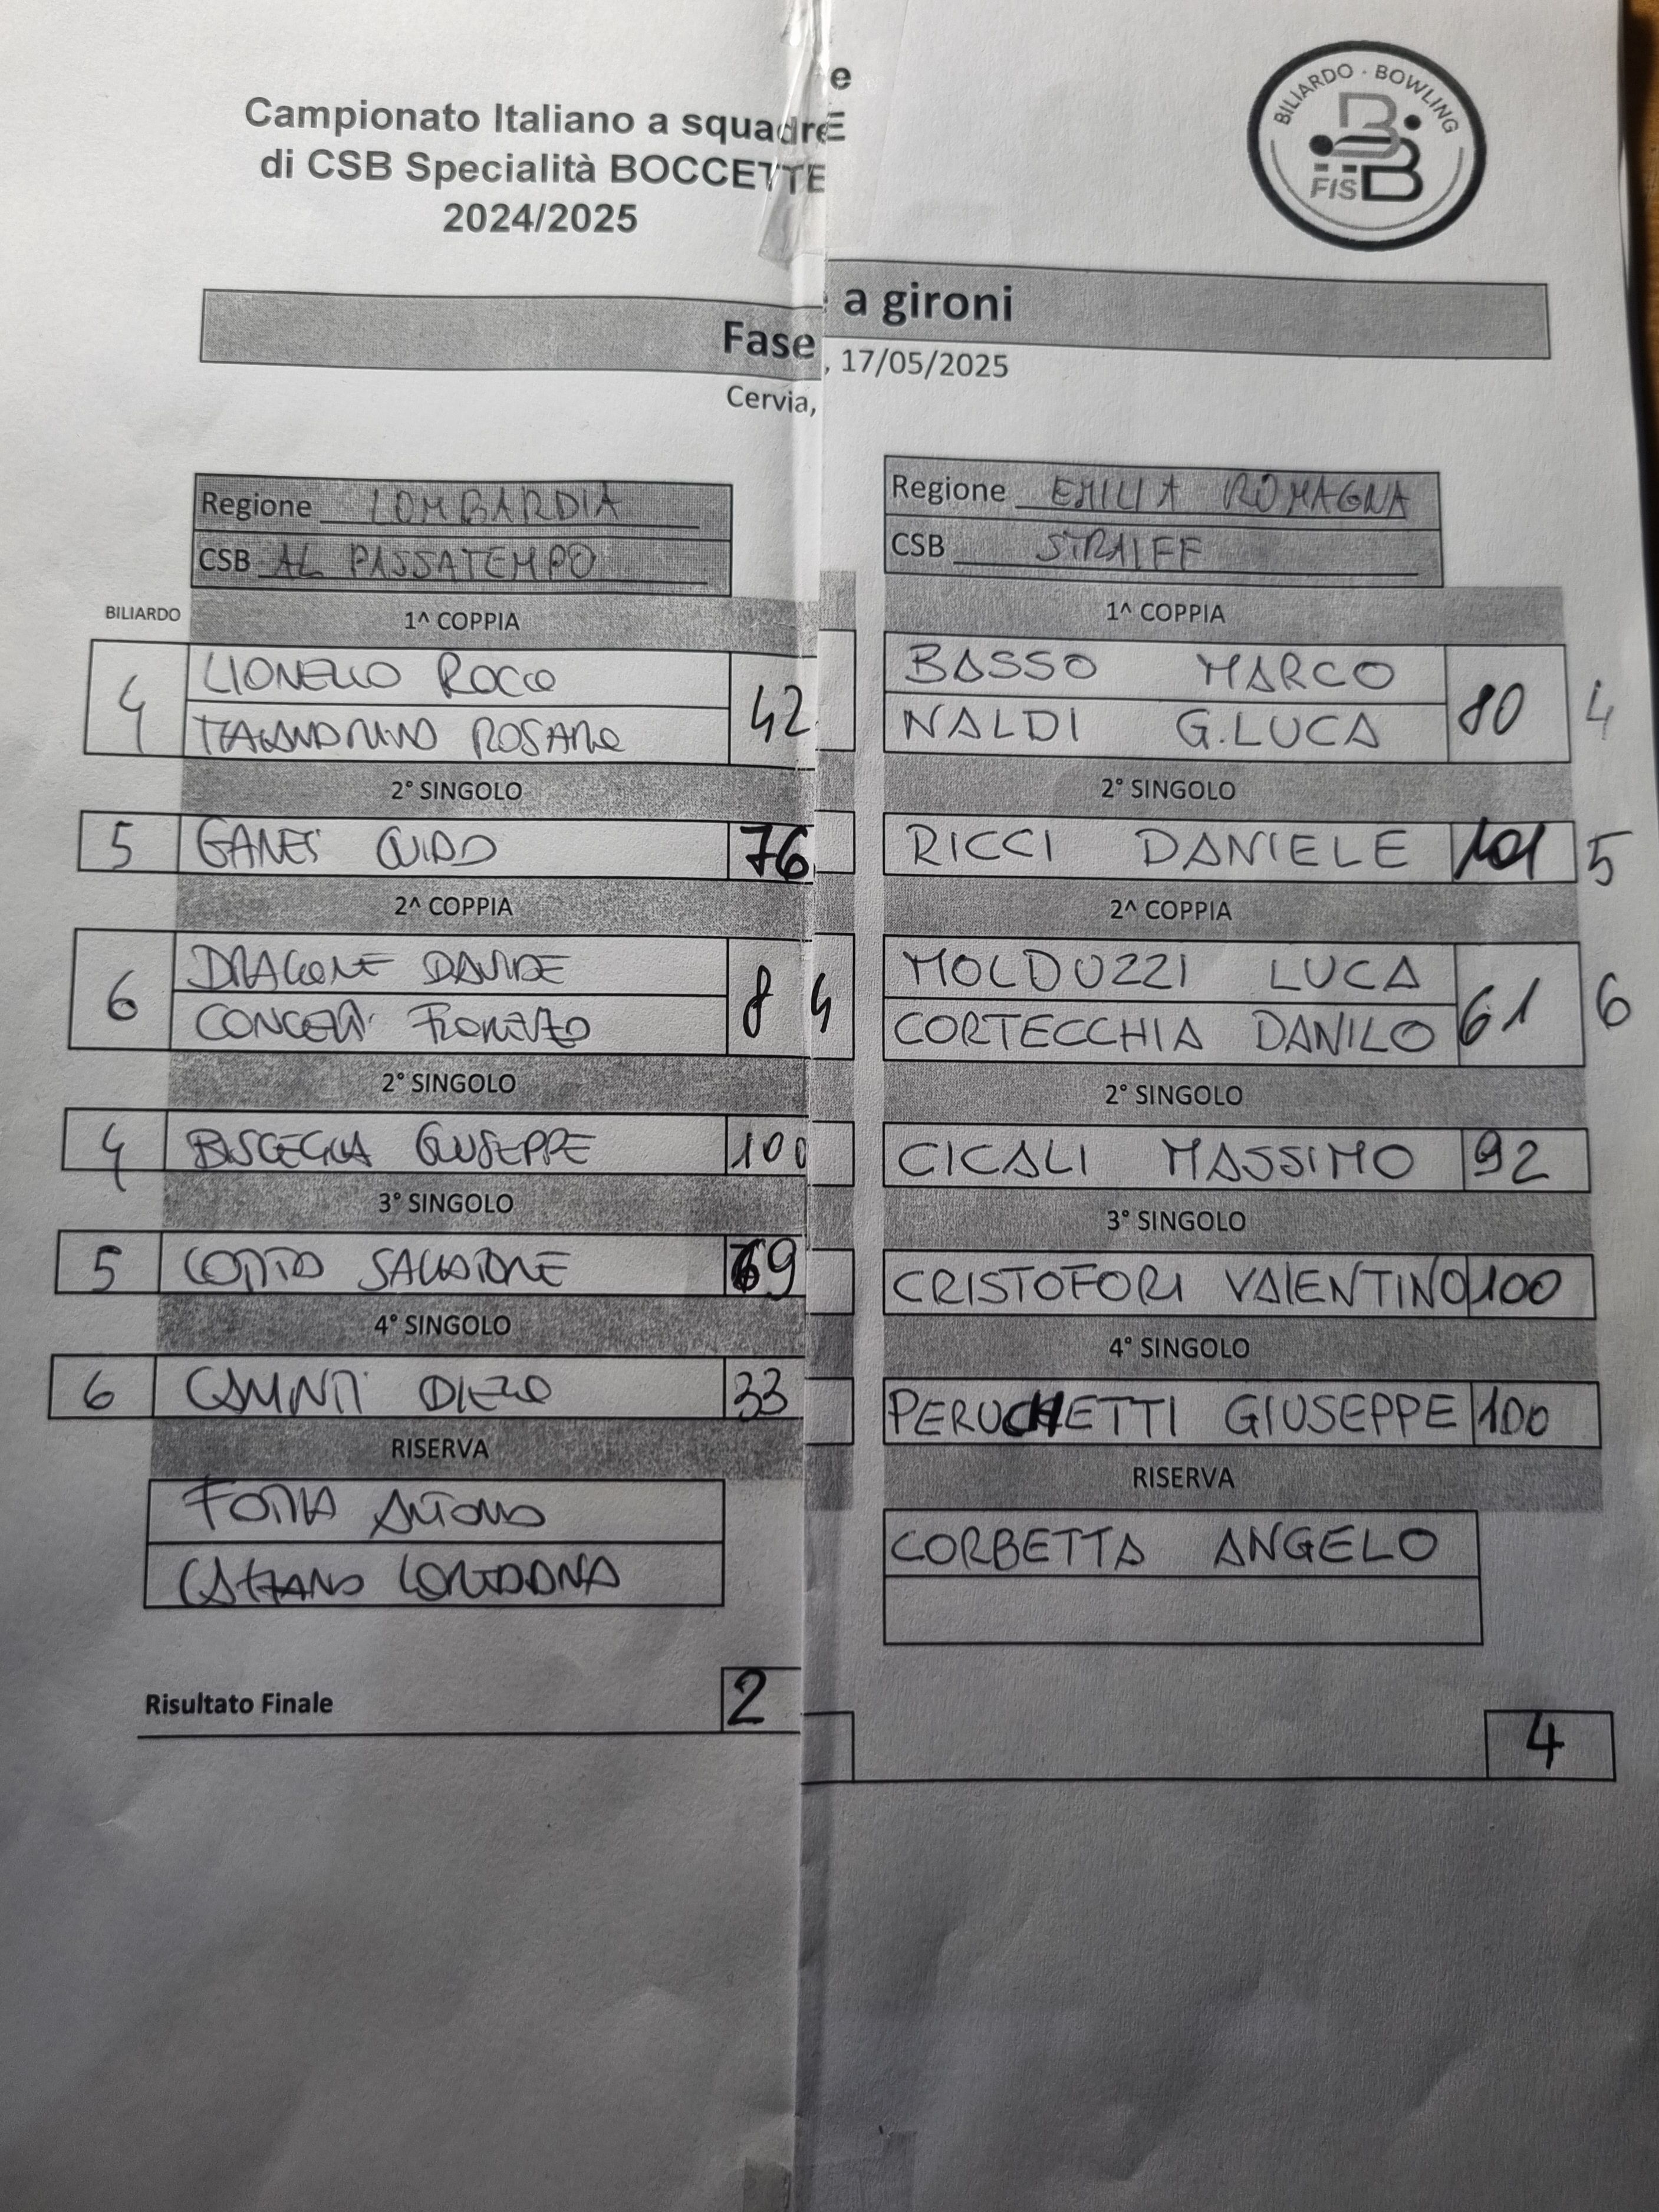 Campionato Italiano a squadre e
di CSB Specialità BOCCETTE E
2024/2025
BILIARDO · BOWLING
FISBB
Fase a gironi
Cervia, , 17/05/2025
Regione LOMBARDIA
CSB AL PASSATEMPO
Regione EMILIA ROMAGNA
CSB
BILIARDO 1^ COPPIA 1^ COPPIA
4 LIONELLO ROCCO 42 BASSO MARCO 80 4
ROSARIO NALDI G.LUCA
2° SINGOLO 2° SINGOLO
5 GUIDO 76 RICCI DANIELE 101 5
2^ COPPIA 2^ COPPIA
6 DRAGONE DAVIDE 84 MOLDUZZI LUCA 61 6
FIORENZO CORTECCHIA DANILO
2° SINGOLO 2° SINGOLO
4 BISCEGLIA GIUSEPPE 100 CICALI MASSIMO 92
3° SINGOLO 3° SINGOLO
5 SALVATORE 69 CRISTOFORI VALENTINO 100
4° SINGOLO 4° SINGOLO
6 33 PERUCHETTI GIUSEPPE 100
RISERVA RISERVA
ANTONIO CORBETTA ANGELO
LOREDANA
Risultato Finale 2 4